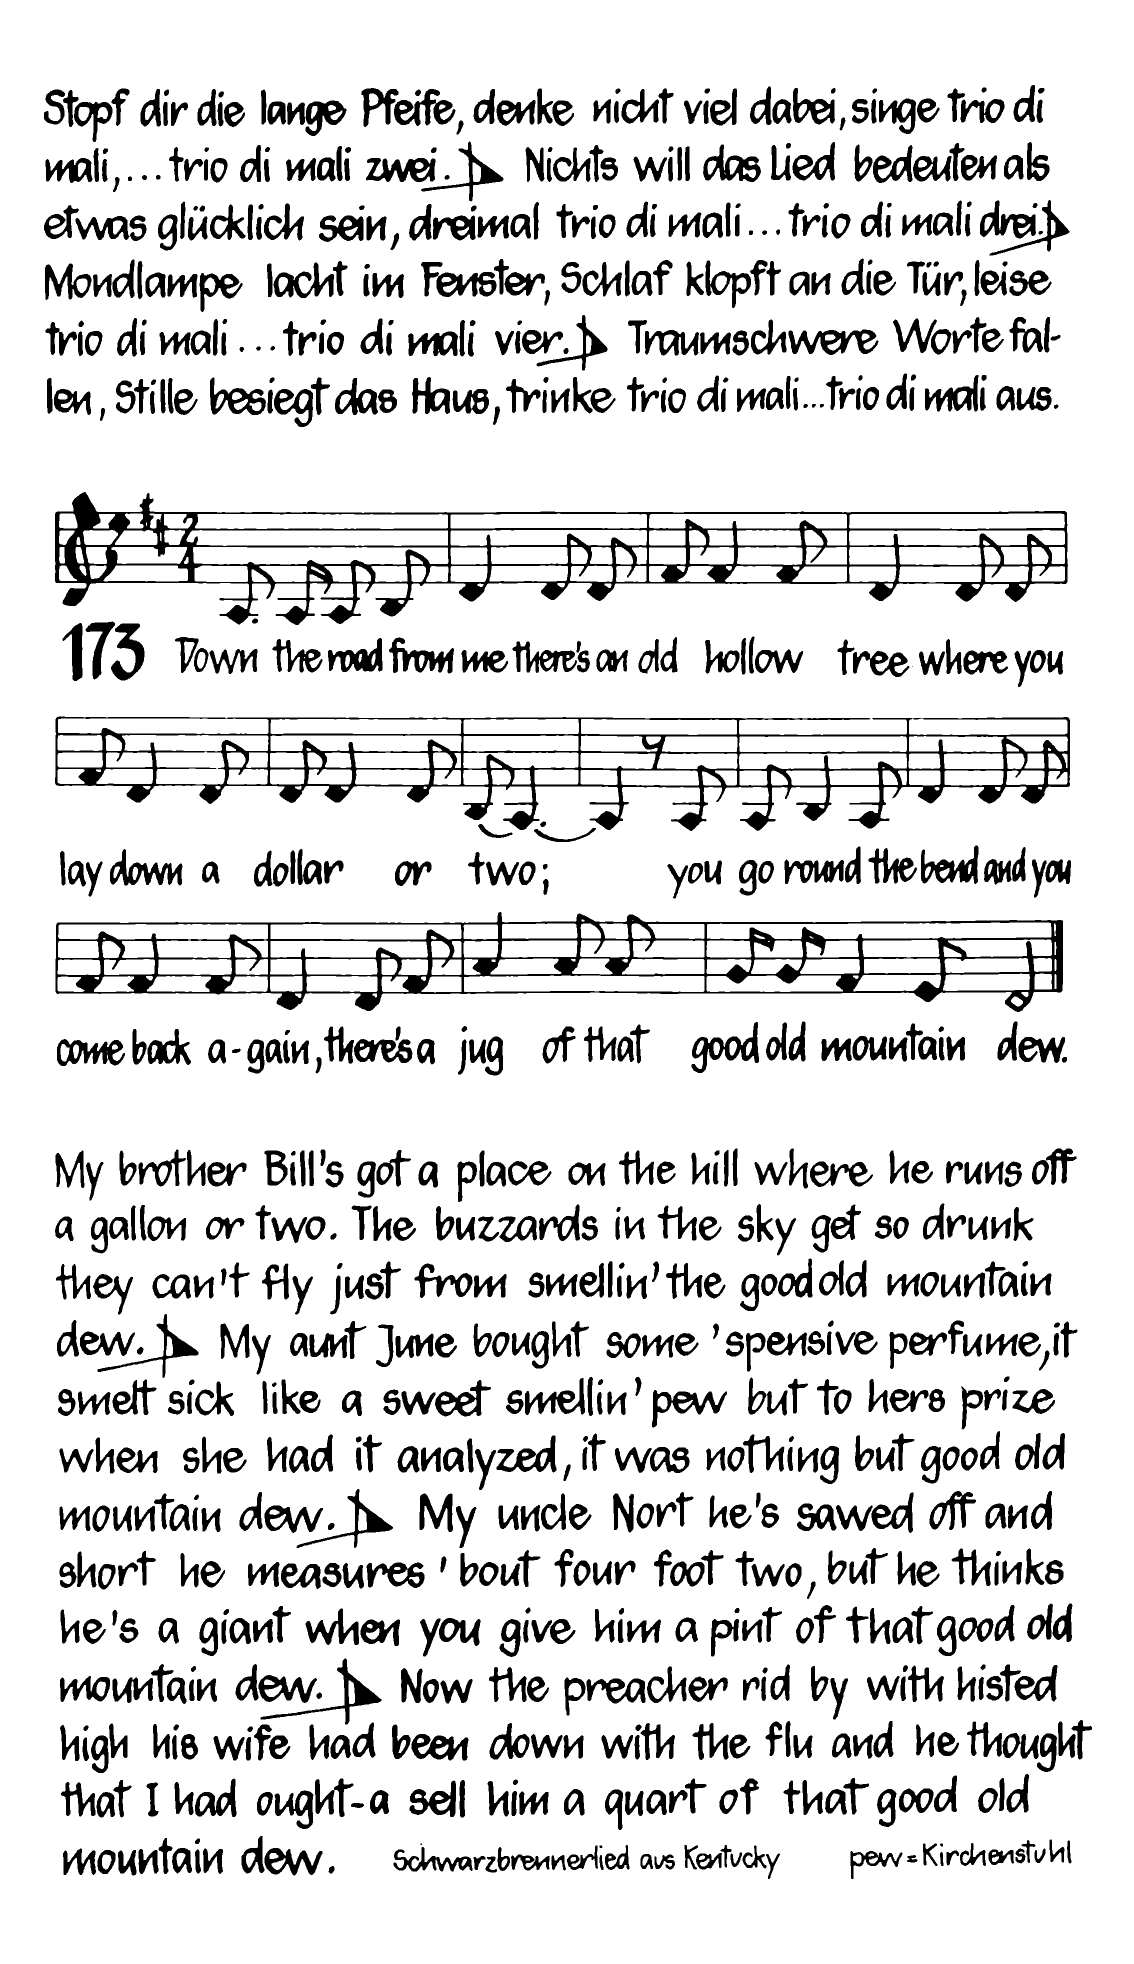 Stopf dir die lange Pfeife, denke nicht viel dabei, singe trio di
mali,... trio di mali zwei. Nichts will das Lied bedeuten als
etwas glücklich sein, dreimal trio di mali... trio di mali drei.
Mondlampe lacht im Fenster, Schlaf klopft an die Tür, leise
trio di mali ... trio di mali vier. Traumschwere Worte fal-
len, Stille besiegt das Haus, trinke trio di mali... trio di mali aus.
2
4
173 Down the road from me there's an old hollow tree where you
lay down a dollar or two; you go round the bend and you
come back a-gain, there's a jug of that good old mountain dew.
My brother Bill's got a place on the hill where he runs off
a gallon or two. The buzzards in the sky get so drunk
they can't fly just from smellin' the good old mountain
dew. My aunt June bought some 'spensive perfume, it
smelt sick like a sweet smellin' pew but to hers prize
when she had it analyzed, it was nothing but good old
mountain dew. My uncle Nort he's sawed off and
short he measures 'bout four foot two, but he thinks
he's a giant when you give him a pint of that good old
mountain dew. Now the preacher rid by with histed
high his wife had been down with the flu and he thought
that I had ought-a sell him a quart of that good old
mountain dew. Schwarzbrennerlied aus Kentucky pew = Kirchenstuhl